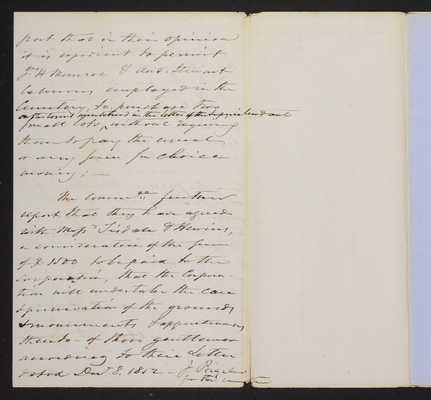 port that in their opinion
it is expedient to permit
H Munroe & And. Stewart
laborers employed in the
Cemetery, to purchase two
as fractional as mentioned in the letter of the Superintendent
small lots, without requiring
them to pay the usual
or any sum for choice
money; —
The Comm.ee further
report that they have agreed
with Mess.rs Tisdale & Hewins,
in consideration of the sum
of $1500 to be paid to the
Corporation, that the Corpora-
tion will undertake the care
& preservation of the grounds,
& monuments & appurtenances
thereto of those gentlemen
according to their Letter
dated Dec.r 8. 1852 —
for the committee